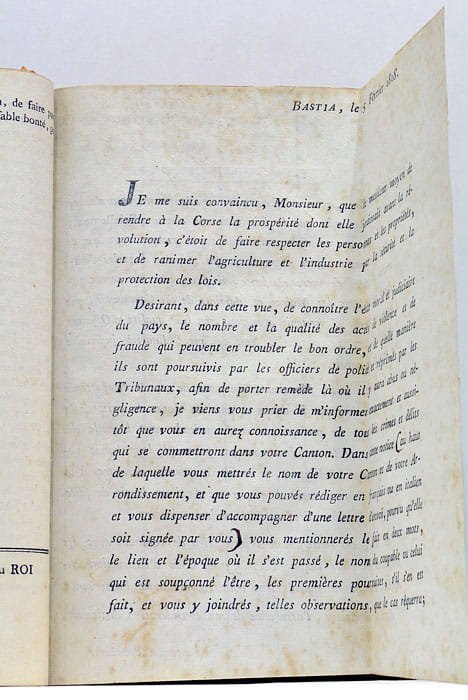 , de faire
able bonté,
u ROI
BASTIA, le 5 Février 1808.
JE me suis convaincu, Monsieur, que le meilleur moyen de
rendre à la Corse la prospérité dont elle jouissait avant la ré-
volution, c'étoit de faire respecter les personnes et les propriétés,
et de ranimer l'agriculture et l'industrie par la sécurité et la
protection des lois.
Desirant, dans cette vue, de connoître l'état moral et judiciaire
du pays, le nombre et la qualité des actes de violence et de
fraude qui peuvent en troubler le bon ordre, et de quelle manière
ils sont poursuivis par les officiers de police et réprimés par les
Tribunaux, afin de porter remède là où il y aura abus ou né-
gligence, je viens vous prier de m'informer exactement et aussi-
tôt que vous en aurez connoissance, de tous les crimes et délits
qui se commettront dans votre Canton. Dans cette notice (au haut
de laquelle vous mettrés le nom de votre Canton et de votre Ar-
rondissement, et que vous pouvés rédiger en français ou en italien
et vous dispenser d'accompagner d'une lettre d'envoi, pourvu qu'elle
soit signée par vous) vous mentionnerés le fait en deux mots,
le lieu et l'époque où il s'est passé, le nom du coupable ou celui
qui est soupçonné l'être, les premières poursuites, s'il s'en est
fait, et vous y joindrés, telles observations, que le cas réquerra;